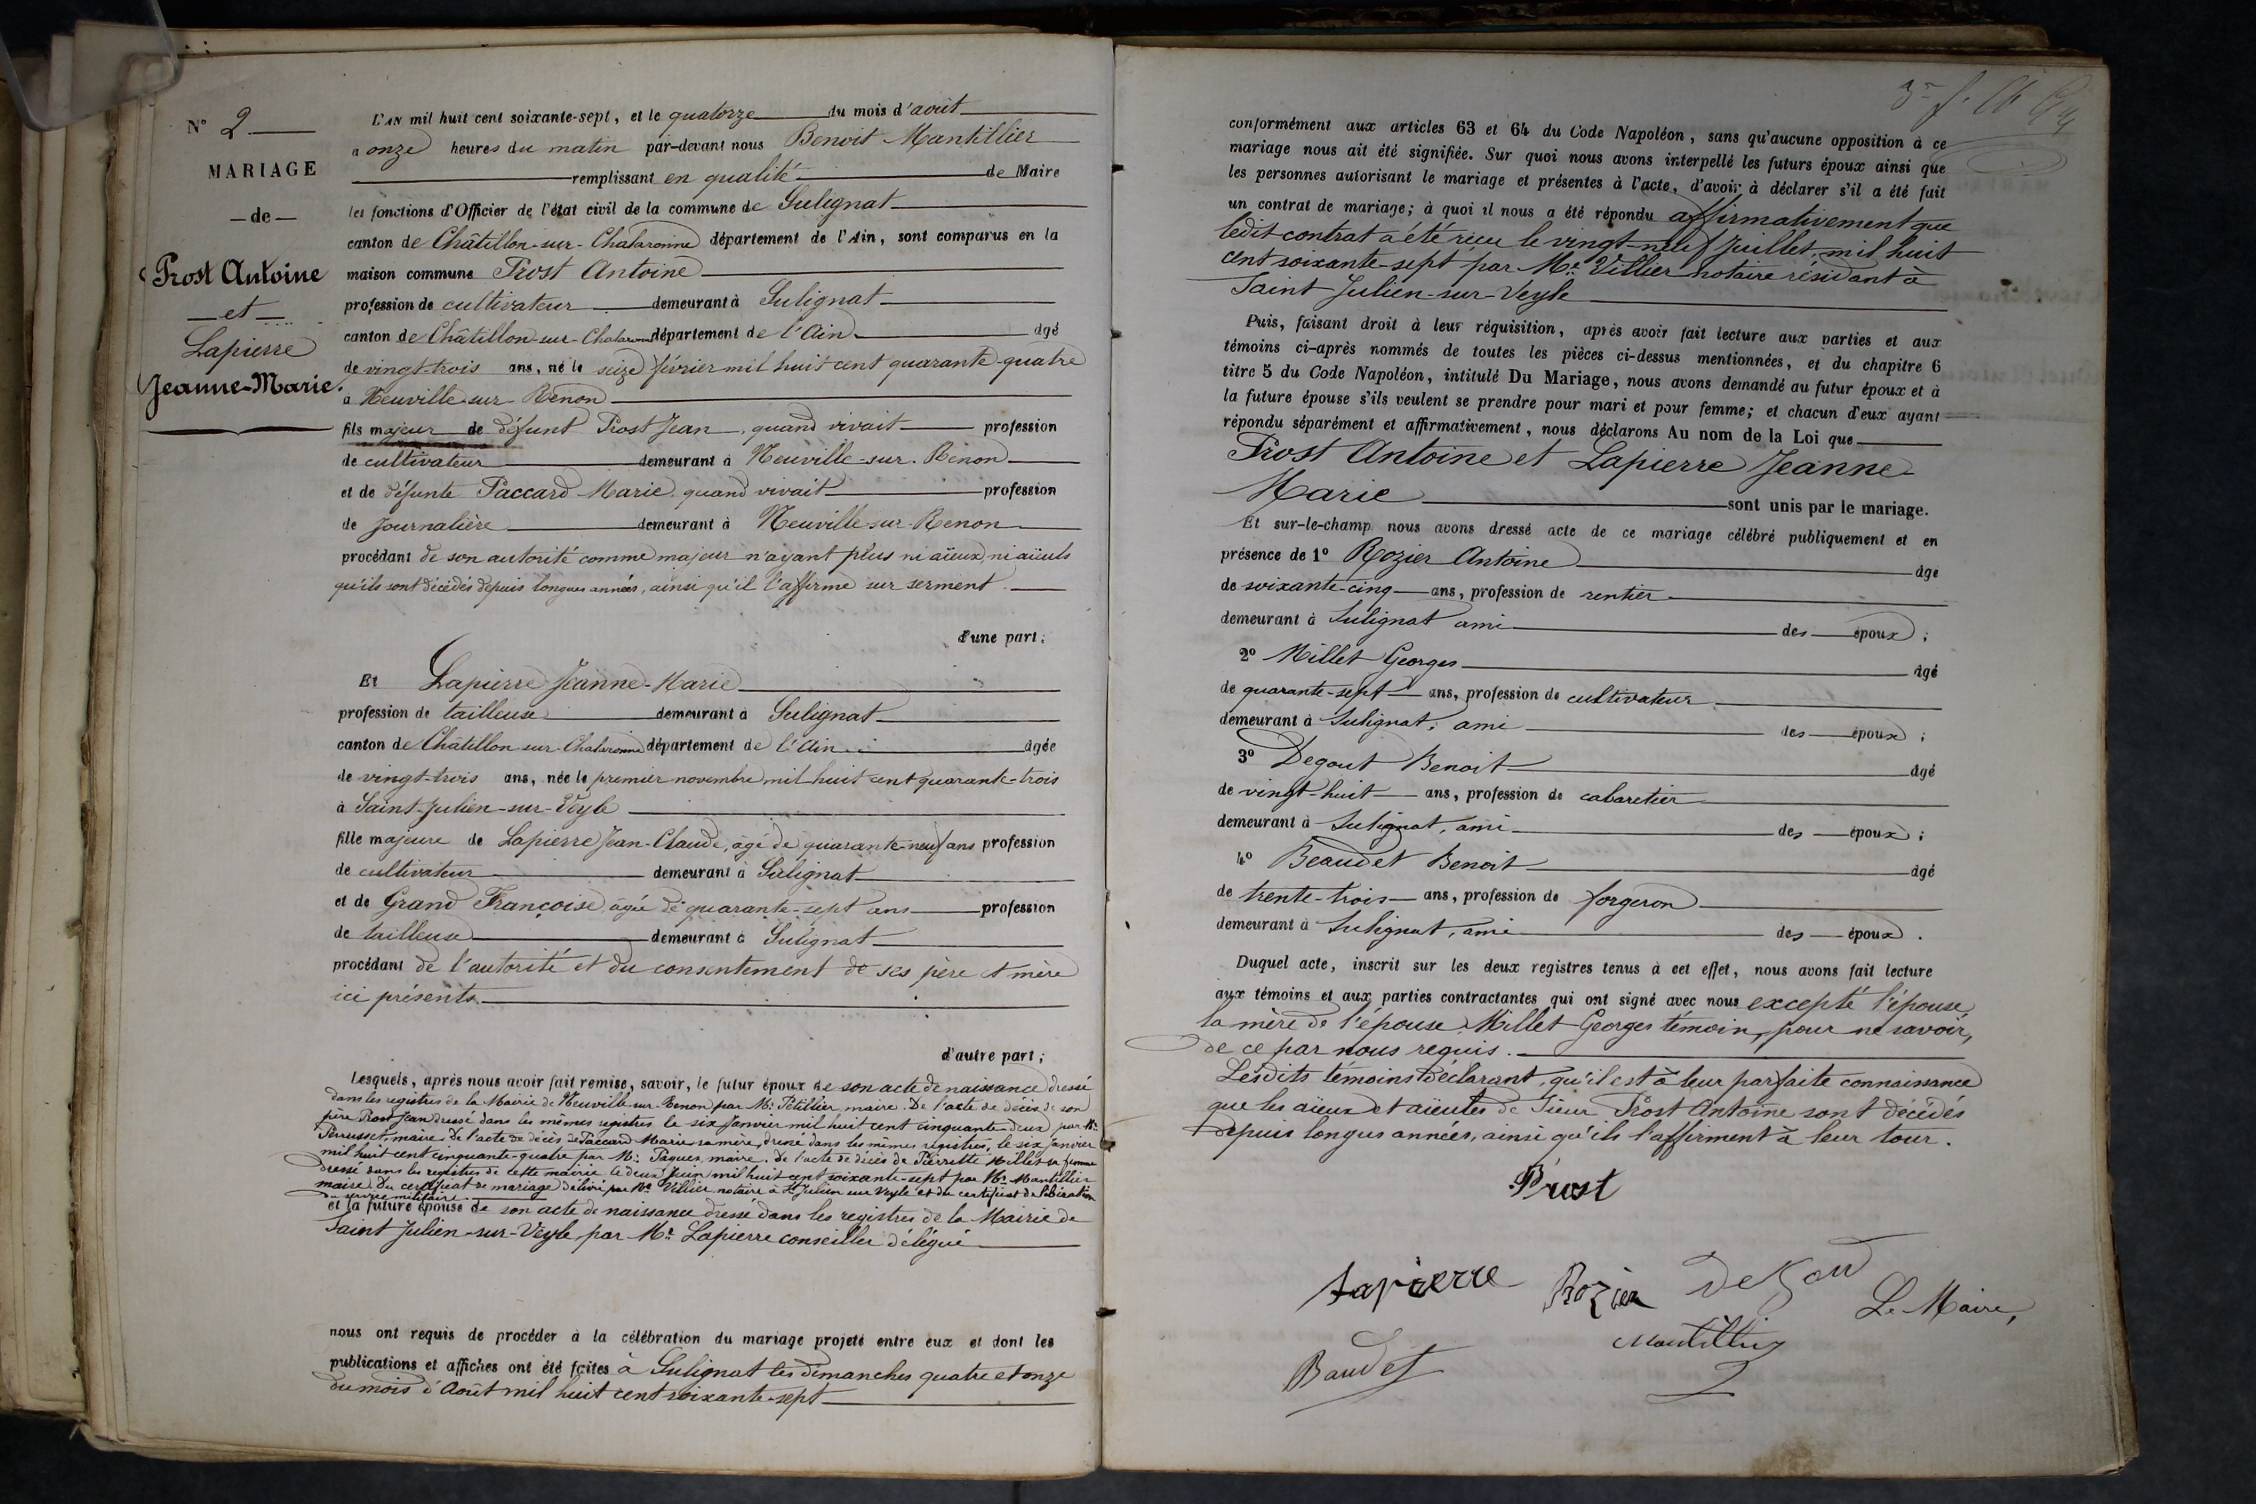 N° 2
MARIAGE
— de —
Prost Antoine
— et —
Lapierre
Jeanne-Marie.
L'AN mil huit cent soixante-sept, et le quatorze du mois d'août
a onze heures du matin par-devant nous Benoit Mantillier
remplissant en qualité de Maire
les fonctions d'Officier de l'état civil de la commune de Sulignat
canton de Châtillon-sur-Chalaronne département de l'Ain, sont comparus en la
maison commune Prost Antoine
profession de cultivateur demeurant à Sulignat
canton de Châtillon-sur-Chalaronne département de l'Ain âgé
de vingt-trois ans, né le seize février mil huit cent quarante-quatre
à Neuville-sur-Renon
fils majeur de défunt Prost Jean, quand vivait profession
de cultivateur demeurant à Neuville-sur-Renon
et de défunte Paccard Marie quand vivait profession
de Journalière demeurant à Neuville-sur-Renon
procédant de son autorité comme majeur n'ayant plus ni aïeux, ni aïeuls
qu'ils sont décédés depuis longues années, ainsi qu'il l'affirme sur serment.
d'une part;
Et Lapierre Jeanne-Marie
profession de tailleuse demeurant à Sulignat
canton de Châtillon-sur-Chalaronne département de l'Ain âgée
de vingt-trois ans, née le premier novembre mil huit cent quarante-trois
à Saint-Julien-sur-Veyle
fille majeure de Lapierre Jean-Claude, âgé de quarante-neuf ans profession
de cultivateur demeurant à Sulignat
et de Grand Françoise, âgée de quarante-sept ans profession
de tailleuse demeurant à Sulignat
procédant de l'autorité et du consentement de ses père et mère
ici présents.
d'autre part;
Lesquels, après nous avoir fait remise, savoir, le futur époux de son acte de naissance dressé
dans les registres de la Mairie de Neuville-sur-Renon par Mr. Pétillier, maire. De l'acte de décès de son
père Prost Jean dressé dans les mêmes registres le six Janvier mil huit cent cinquante-deux par Mr.
Perrusset, maire. De l'acte de décès de Paccard Marie sa mère, dressé dans les mêmes registres, le six janvier
mil huit cent cinquante-quatre par Mr. Pâques, maire. De l'acte de décès de Pierrette Millet sa femme
dressé dans les registres de cette mairie le deux juin mil huit cent soixante-sept par Mr. Mantillier
maire. Du certificat de mariage délivré par Me Villier notaire à St Julien sur Veyle et du certificat de libération
du service militaire.
et la future épouse de son acte de naissance dressé dans les registres de la Mairie de
Saint Julien-sur-Veyle, par Mr. Lapierre conseiller délégué
nous ont requis de procéder à la célébration du mariage projeté entre eux et dont les
publications et affiches ont été faites à Sulignat les dimanches quatre et onze
du mois d'Août mil huit cent soixante-sept
conformément aux articles 63 et 64 du Code Napoléon, sans qu'aucune opposition à ce
mariage nous ait été signifiée. Sur quoi nous avons interpellé les futurs époux ainsi que
les personnes autorisant le mariage et présentes à l'acte, d'avoir à déclarer s'il a été fait
un contrat de mariage; à quoi il nous a été répondu affirmativement que
ledit contrat a été reçu le vingt-neuf Juillet, mil huit
cent soixante-sept par Me. Villier notaire résidant à
Saint Julien-sur-Veyle
Puis, faisant droit à leur réquisition, après avoir fait lecture aux parties et aux
témoins ci-après nommés de toutes les pièces ci-dessus mentionnées, et du chapitre 6
titre 5 du Code Napoléon, intitulé Du Mariage, nous avons demandé au futur époux et à
la future épouse s'ils veulent se prendre pour mari et pour femme; et chacun d'eux ayant
répondu séparément et affirmativement, nous déclarons Au nom de la Loi que
Prost Antoine et Lapierre Jeanne-
Marie sont unis par le mariage.
Et sur-le-champ nous avons dressé acte de ce mariage célébré publiquement et en
présence de 1° Rozier Antoine âgé
de soixante-cinq ans, profession de rentier
demeurant à Sulignat ami des époux;
2° Millet Georges âgé
de quarante-sept ans, profession de cultivateur
demeurant à Sulignat, ami des époux;
3° Degout Benoit âgé
de vingt-huit ans, profession de cabaretier
demeurant à Sulignat, ami des époux;
4° Beaudet Benoit âgé
de trente-trois ans, profession de forgeron
demeurant à Sulignat, ami des époux.
Duquel acte, inscrit sur les deux registres tenus à cet effet, nous avons fait lecture
aux témoins et aux parties contractantes qui ont signé avec nous excepté l'épouse,
la mère de l'épouse, Millet Georges témoin, pour ne savoir,
de ce par nous requis.
Lesdits témoins déclarant, qu'il est à leur parfaite connaissance
que les aïeux et aïeules de Sieur Prost Antoine sont décédés
depuis longues années, ainsi qu'ils l'affirment à leur tour.
Prost
Lapierre Rozier Degout Le Maire,
Mantillier
Baudet